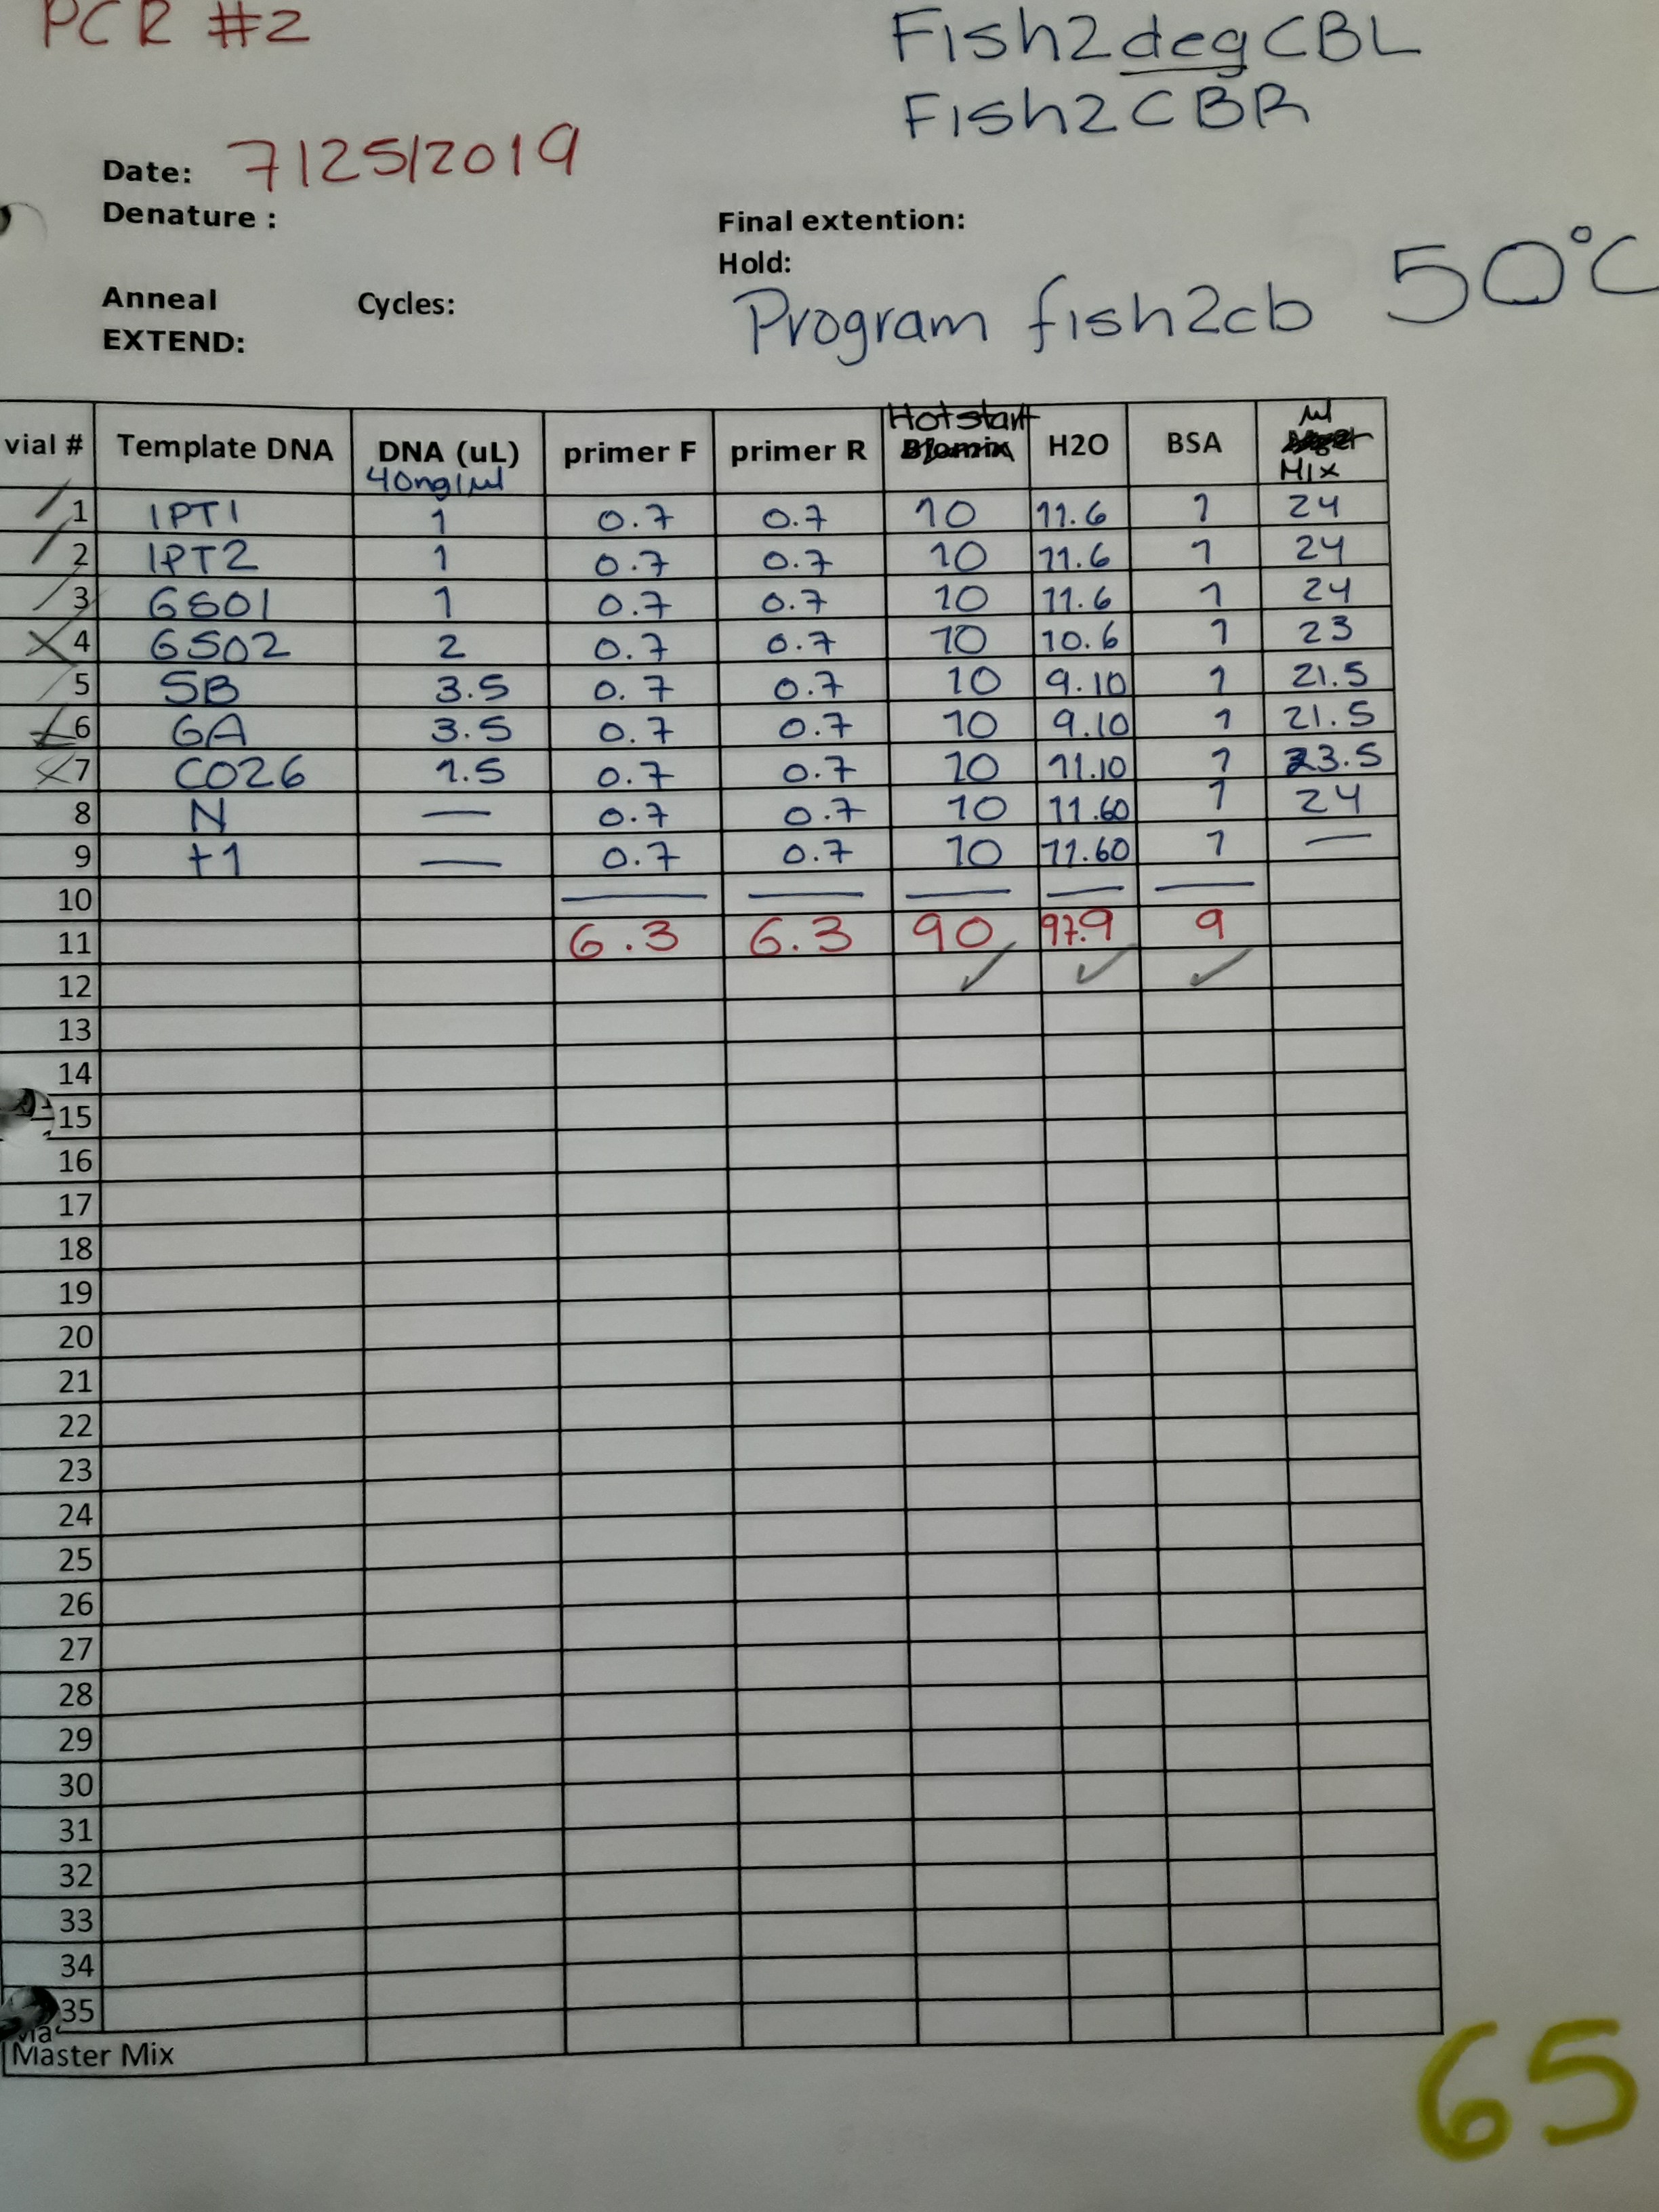 PCR #2
Fish2degCBL
Fish2CBR
Date: 7/25/2019
Denature :
Final extention:
Hold:
Anneal Cycles:
EXTEND:
Program fish2cb 50°C
vial # Template DNA DNA (uL) 40ng/µl primer F primer R Hotstart Biomix H2O BSA µl Mix
1 IPT1 1 0.7 0.7 10 11.6 1 24
2 IPT2 1 0.7 0.7 10 11.6 1 24
3 GS01 1 0.7 0.7 10 11.6 1 24
4 GS02 2 0.7 0.7 10 10.6 1 23
5 SB 3.5 0.7 0.7 10 9.10 1 21.5
6 GA 3.5 0.7 0.7 10 9.10 1 21.5
7 CO26 1.5 0.7 0.7 10 11.10 1 23.5
8 N — 0.7 0.7 10 11.60 1 24
9 +1 — 0.7 0.7 10 11.60 1 —
10
11 6.3 6.3 90 97.9 9
12 ✓ ✓ ✓
13
14
15
16
17
18
19
20
21
22
23
24
25
26
27
28
29
30
31
32
33
34
35
Master Mix
65